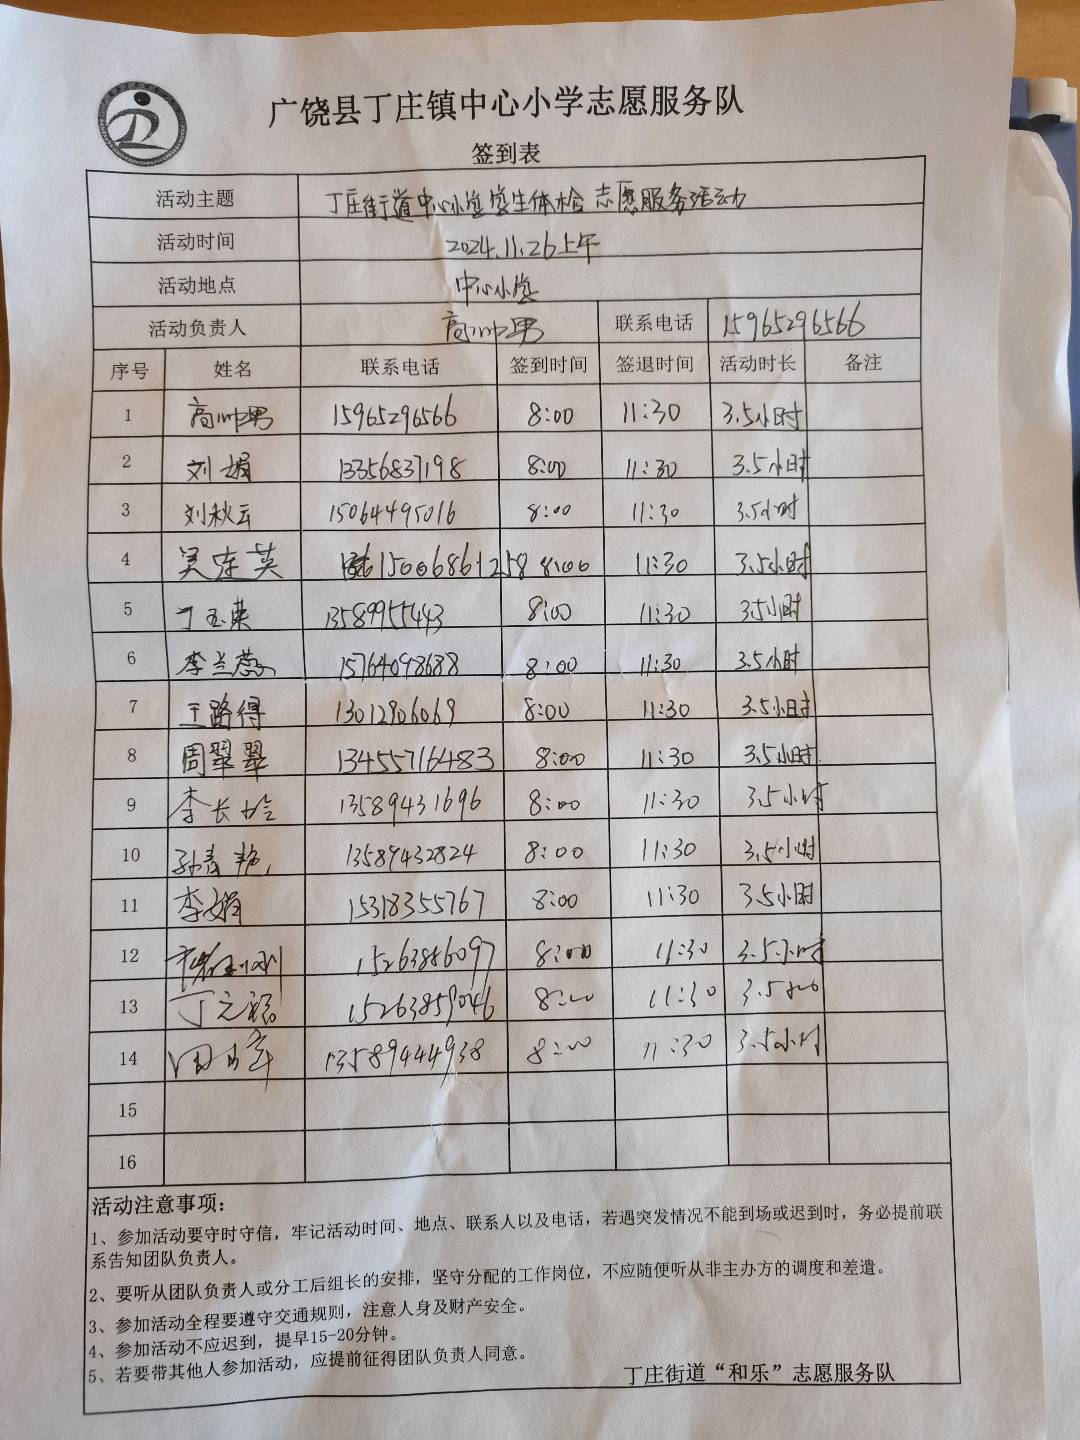 广饶县丁庄镇中心小学志愿服务队
签到表
活动主题 丁庄街道中心小学学生体检志愿服务活动
活动时间 2024.11.26上午
活动地点 中心小学
活动负责人 高帅男 联系电话 15965296566
序号 姓名 联系电话 签到时间 签退时间 活动时长 备注
1 高帅男 15965296566 8:00 11:30 3.5小时
2 刘娟 13356837198 8:00 11:30 3.5小时
3 刘秋云 15064495016 8:00 11:30 3.5小时
4 吴连英 15006861258 8:00 11:30 3.5小时
5 丁玉英 13589955443 8:00 11:30 3.5小时
6 李兰蕊 15764098688 8:00 11:30 3.5小时
7 王路得 13012906069 8:00 11:30 3.5小时
8 周翠翠 13455716483 8:00 11:30 3.5小时
9 李长玲 13589431696 8:00 11:30 3.5小时
10 孙春艳 13589432824 8:00 11:30 3.5小时
11 李娟 15318355767 8:00 11:30 3.5小时
12 15263856097 8:00 11:30 3.5小时
13 丁元 15263859046 8:00 11:30 3.5
14 13589444938 8:00 11:30 3.5小时
15
16
活动注意事项：
1、参加活动要守时守信，牢记活动时间、地点、联系人以及电话，若遇突发情况不能到场或迟到时，务必提前联
系告知团队负责人。
2、要听从团队负责人或分工后组长的安排，坚守分配的工作岗位，不应随便听从非主办方的调度和差遣。
3、参加活动全程要遵守交通规则，注意人身及财产安全。
4、参加活动不应迟到，提早15-20分钟。
5、若要带其他人参加活动，应提前征得团队负责人同意。
丁庄街道“和乐”志愿服务队